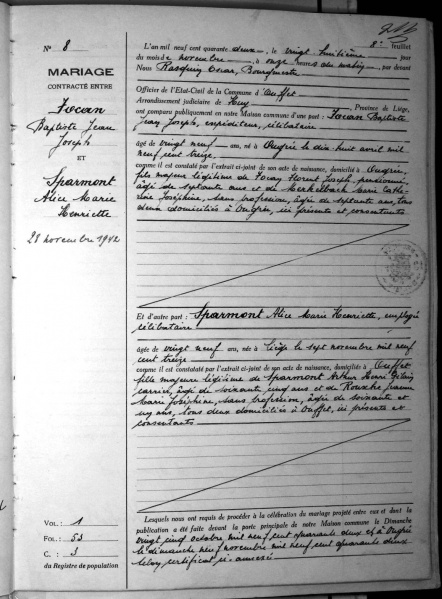 8e feuillet
N° 8
MARIAGE
CONTRACTÉ ENTRE
Focan
Baptiste Jean
Joseph
ET
Sparmont
Alice Marie
Henriette
28 novembre 1942
VOL.: 1
FOL.: 53
C.: 3
du Registre de population
L'an mil neuf cent quarante deux, le vingt huitième jour
du mois de novembre, à onze heures du matin, par devant
Nous Rasquin Oscar, Bourgmestre
Officier de l'Etat-Civil de la Commune d'Ouffet
Arrondissement judiciaire de Huy, Province de Liège,
ont comparu publiquement en notre Maison commune d'une part : Focan Baptiste
Jean Joseph, expéditeur, célibataire
âgé de vingt neuf ans, né à Ougrée le dix-huit avril mil
neuf cent treize,
comme il est constaté par l'extrait ci-joint de son acte de naissance, domicilié à Ougrée,
fils majeur légitime de Focan Florent Joseph, pensionné,
âgé de septante ans et de Merkelbach Marie Cathe-
rine Joséphine, sans profession, âgée de septante ans, tous
deux domiciliés à Ougrée, ici présents et consentants
Et d'autre part : Sparmont Alice Marie Henriette, employée
célibataire
âgée de vingt neuf ans, née à Liège le sept novembre mil neuf
cent treize
comme il est constaté par l'extrait ci-joint de son acte de naissance, domiciliée à Ouffet
fille majeure légitime de Sparmont Arthur Henri
carrier, âgé de soixante cinq ans et de
Marie Joséphine, sans profession, âgée de soixante et
un ans, tous deux domiciliés à Ouffet, ici présents et
consentants
Lesquels nous ont requis de procéder à la célébration du mariage projeté entre eux et dont la
publication a été faite devant la porte principale de notre Maison commune le Dimanche
vingt cinq octobre mil neuf cent quarante deux et à Ougrée
le dimanche neuf novembre mil neuf cent quarante deux
selon certificat ci-annexé